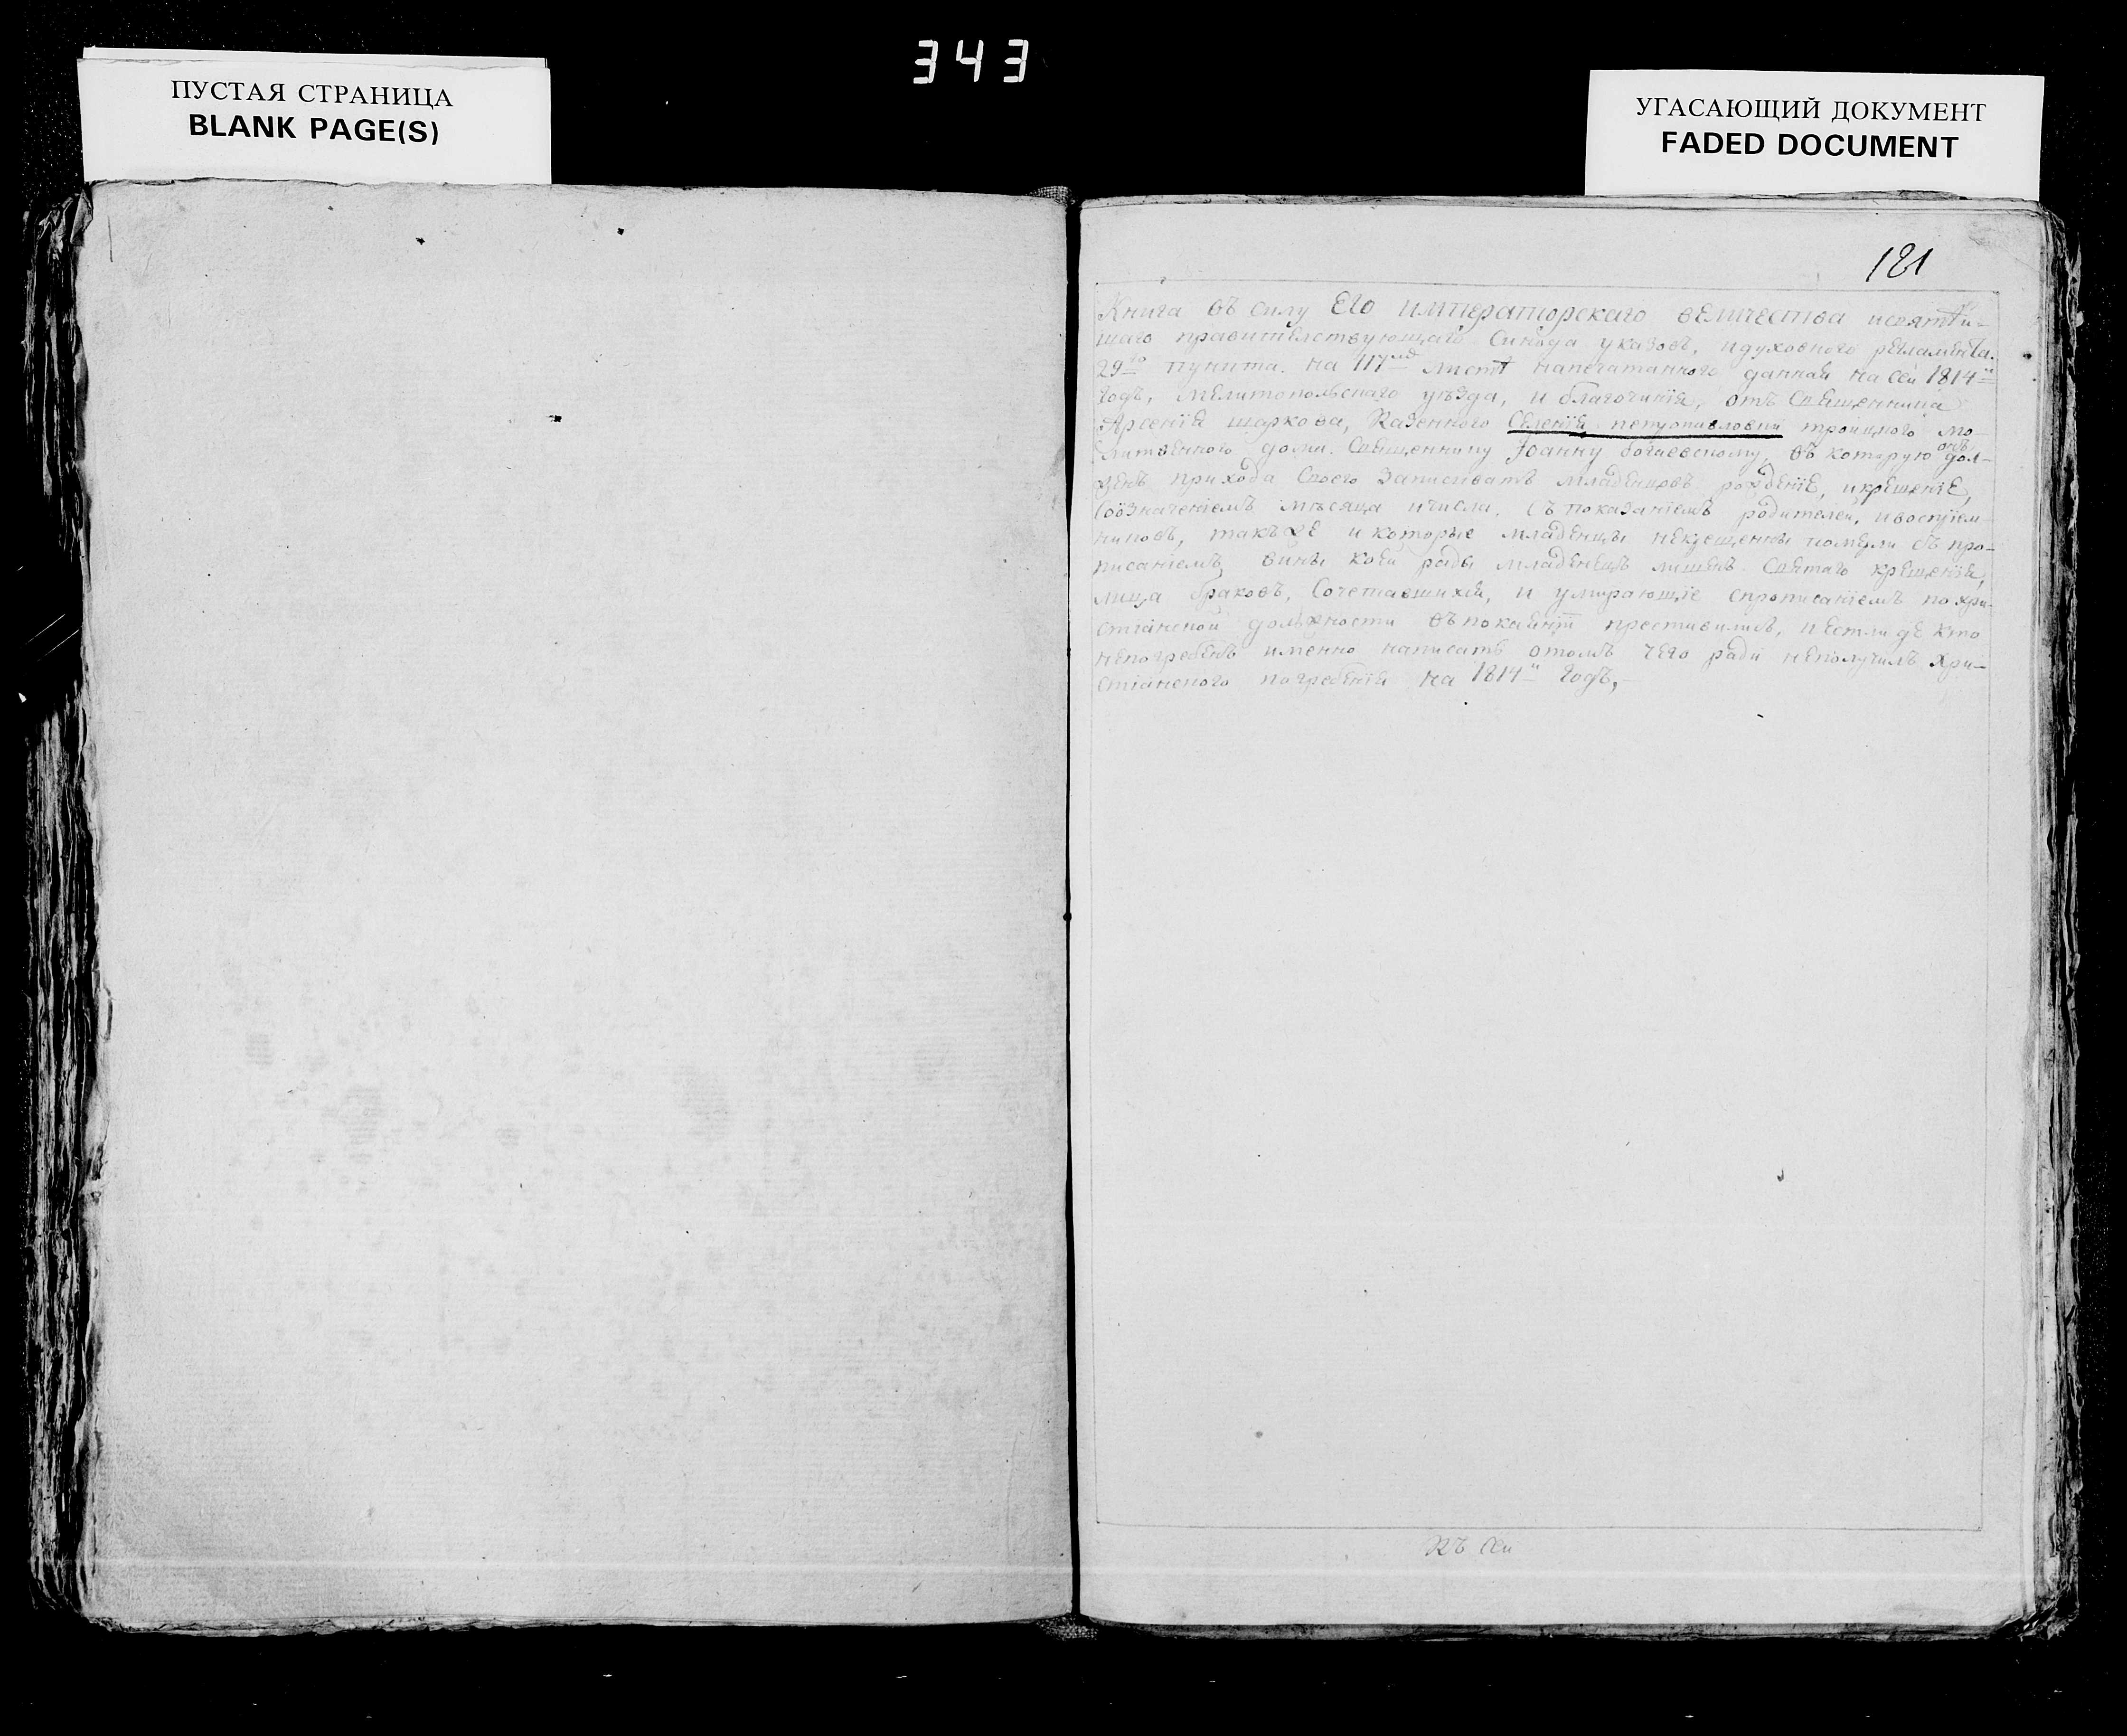 343
ПУСТАЯ СТРАНИЦА
BLANK PAGE(S)
УГАСАЮЩИЙ ДОКУМЕНТ
FADED DOCUMENT
181
Книга въ силу Его императорскаго величества исвятѣи-
шаго правительствующаго Синода указовъ, идуховного регламента.
29го пункта. на 117мъ листѣ напечатанного данная на сеи 1814и
годъ, мелитопольскаго уѣзда, и благочинія, отъ Священника
Арсенія шаркова, Казенного Селенія петропавловки троицкого мо-
литвенного дома. Священнику Іоанну богаевскому, въ которую онъ дол-
женъ прихода Своего Записивать младенцовъ рожденіе, икрещеніе,
Соозначеніемъ мѣсяца ичисла. Съ показаніемъ родителеи, ивоспріем-
никовъ, такъже и которые младенцы некрещенны померли съ про-
писаніемъ вины коеи ради младенецъ лишенъ Святаго крещенія,
лица браковъ, Сочетавшихся, и умирающіе спрописаніемъ по хри-
стіянскои должности въ покаяніи преставились, и естли де кто
непогребенъ именно написать отомъ чего ради неполучилъ хри-
стіанского погребенія на 1814и годъ,-
Къ сеи